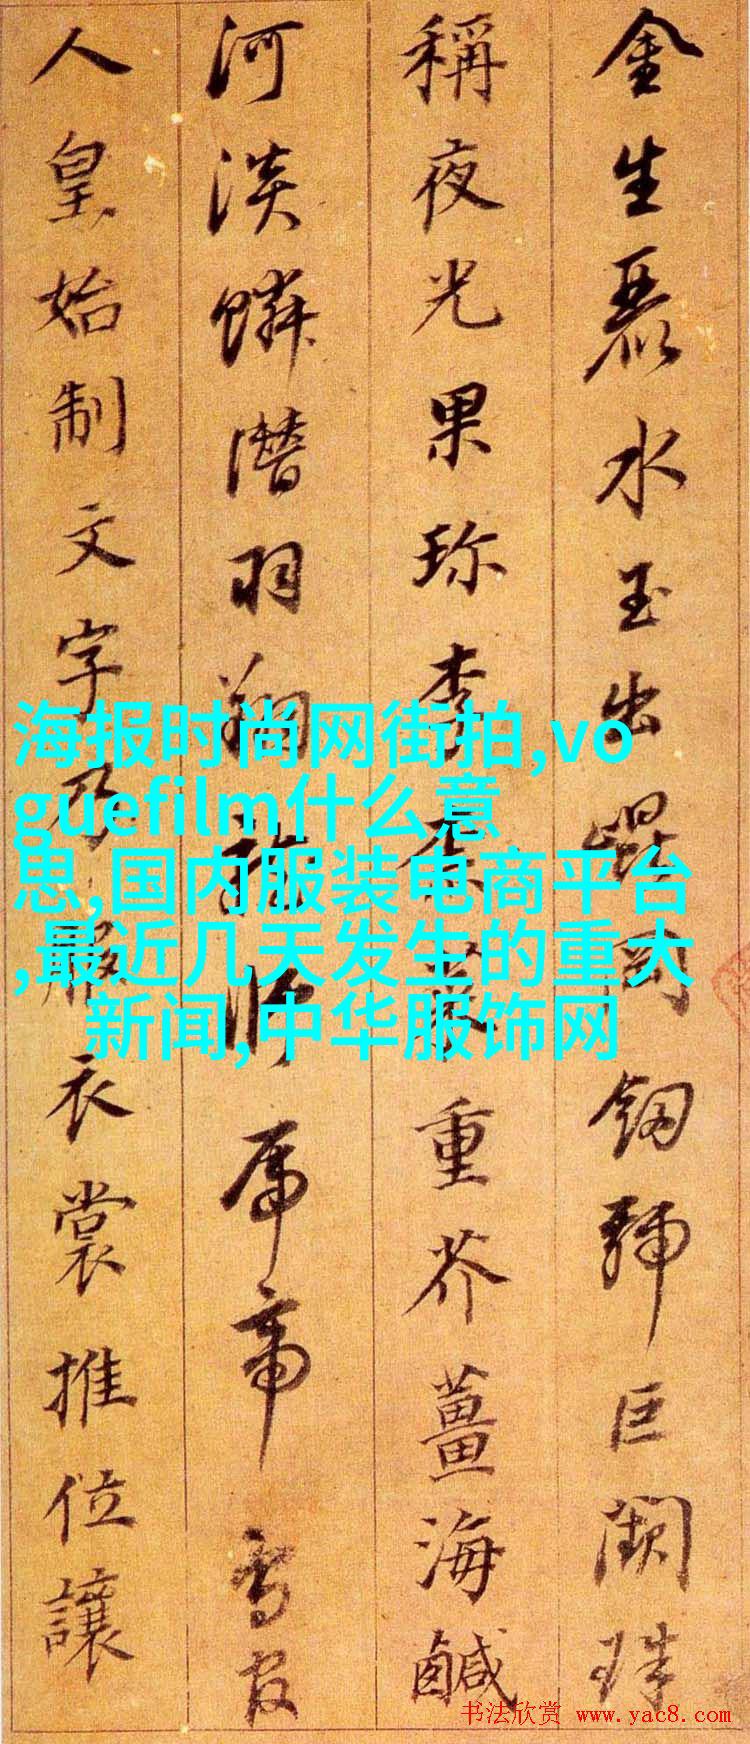 金生麗水玉出崐岡釼號巨闕珠
稱夜光果珍李柰菜重芥薑海鹹
河淡鱗潛羽翔龍師帝鳥官
人皇始制文字乃服衣裳推位讓
海报时尚网街拍,vo
guefilm什么意
思,国内服装电商平台
,最近几天发生的重大
新闻,中华服饰网
书法欣赏 www.yac8.com